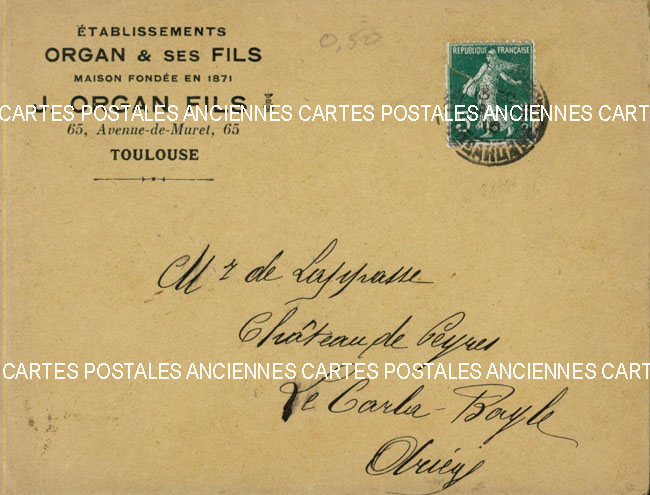 ÉTABLISSEMENTS
ORGAN & SES FILS
MAISON FONDÉE EN 1871
J. ORGAN FILS
65, Avenue-de-Muret, 65
TOULOUSE
0,50
REPUBLIQUE FRANÇAISE
CARTES POSTALES ANCIENNES CARTES POSTALES ANCIENNES CARTE
Mr de Lappasse
Château de Peyres
CARTES POSTALES ANCIENNES CARTES POSTALES ANCIENNES CART
Le Carla-Bayle
Ariège